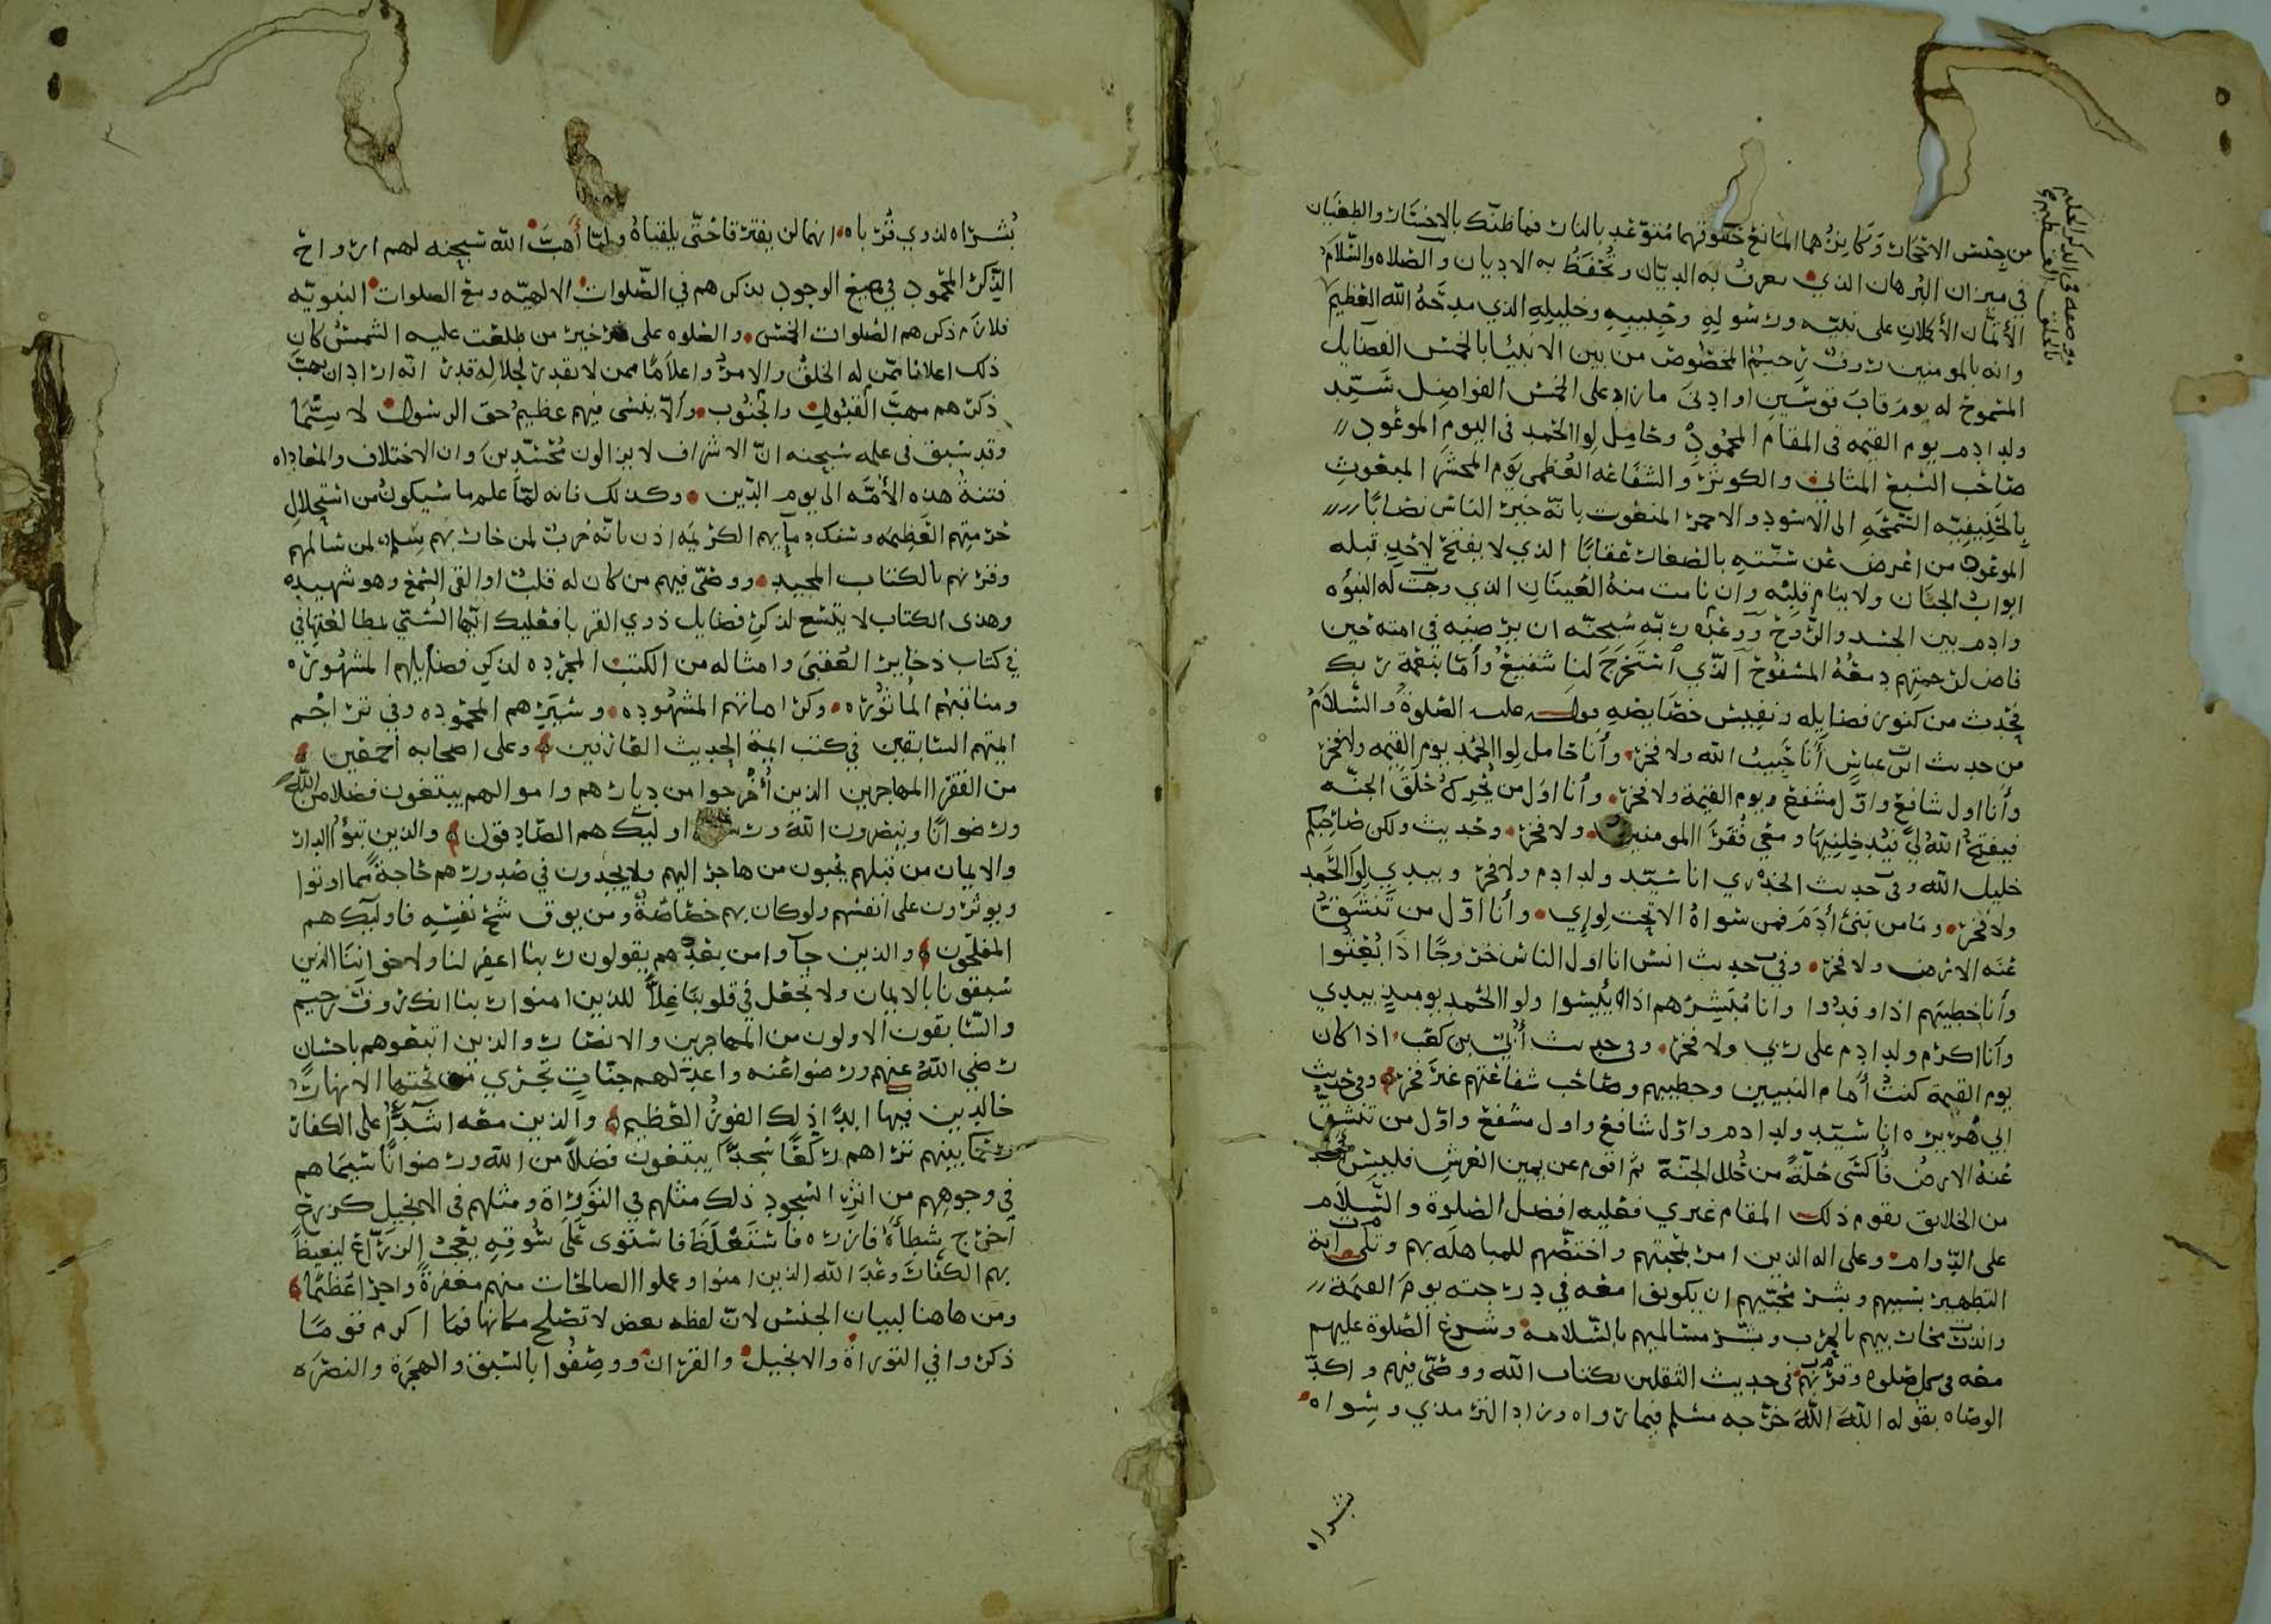 من جنس الاتجار وكانزهما المانع حقوقهما متوعد بالنار فما ظنك بالاختار والطغيان
في ميزان البرهان الذي يعرف به الديان وتحفظ به الاديان والصلاه والسلام
الأتمان الأكملان على نبيه ورسوله وحبيبه وخليله الذي مدحه الله العظيم
وانه بالمومنين روف رحيم المخصوص من بين الانبيا بالخمس الفضايل
الممنوح له يوم قاب قوسين او ادنى ما زاد على الخمس الفواضل سيد
ولد ادم يوم القيمه في المقام المحمود وحامل لوا الحمد في اليوم الموعود
صاحب السبع المثاني والكوثر والشفاعه العظمى يوم المحشر المبعوث
بالحنيفيه السمحه الى الاسود والاحمر المنعوت بانه خير الناس نصابا
الموعود من اعرض عن سنته بالصغار عقابا الذي لا يفتح لاحد قبله
ابواب الجنان ولا ينام قلبه وان نامت منه العينان الذي وجبت له النبوه
وادم بين الجسد والروح ووعده ربه سبحنه ان يرضيه في امته حين
فاض لرحمتهم دمعه المسفوح الذي استخرج لنا شفيع وأما بنعمة ربك
فحدث من كنوز فضايله ونفيس خصايصه قوله عليه الصلوة والسلام
من حديث ابن عباس أنا حبيب الله ولا فخر وأنا حامل لوا الحمد يوم القيمه ولا فخر
وأنا اول شافع واول مشفع يوم القيمة ولا فخر وأنا اول من يحرك حلق الجنه
فيفتح الله لي فيدخلنيها ومعي فقرا المومنين ولا فخر وحديث ولكن صاحبكم
خليل الله وفي حديث الخدري انا سيد ولد ادم ولا فخر وبيدي لوا الحمد
ولا فخر وما من بني أدم فمن سواه الا تحت لوإي وأنا اول من تنشق
عنه الارض ولا فخر وفي حديث انس انا اول الناس خروجا اذا بعثوا
وأنا خطيبهم اذا وفدوا وانا مبشرهم اذا يئيسوا ولوا الحمد يوميذ بيدي
وأنا اكرم ولد ادم على ربي ولا فخر وفي حديث أبي بن كعب اذا كان
يوم القيمة كنت أمام النبيين وخطيبهم وصاحب شفاعتهم غير فخر وفي حديث
ابي هريره انا سيد ولد ادم واول شافع واول مشفع واول من تنشق
عنه الارض فأكسى حلة من حلل الجنة ثم اقوم عن يمين العرش فليس احد
من الخلايق يقوم ذلك المقام غيري فعليه افضل الصلوة والسلام
على الدوام وعلى اله الذين امر بمحبتهم واختصهم للمباهله بهم وتلى اية
التطهير بسببهم وبشر محبيهم ان يكونوا معه في درجته يوم القيمة
وانذر محاربيهم بالحرب وبشر مسالميهم بالسلامه وشرع الصلوة عليهم
معه في كل صلوه وقرنهم في حديث الثقلين بكتاب الله ووصى فيهم واكد
الوصاه بقوله الله الله خرجه مسلم فيما رواه وزاد الترمذي وسواه
بشراه
بشراه لذوي قرباه انهما لن يفترقا حتى يلقياه ولما أهب الله سبحنه لهم ارواح
الذكر المحمود في جميع الوجود بذكرهم في الصلوات الالهيه ومع الصلوات النبويه
فلازم ذكرهم الصلوات الخمس والصلوه على خير من طلعت عليه الشمس كان
ذلك اعلانا ممن له الخلق والامر واعلاما ممن لا يقدر لجلاله قدر انه اراد ان يهب
ذكرهم مهب القبول والجنوب وألا ينسى فيهم عظيم حق الرسول لا سيما
وقد سبق في علمه سبحنه ان الاشراف لا يزالون محسدين وان الاختلاف والمعاداه
فتنة هذه الأمه الى يوم الدين وكذلك فانه لما علم ما سيكون من استحلال
حرمتهم العظيمه وسفك دمآيهم الكريمه اذن بانه حرب لمن حاربهم سلم لمن سالمهم
وقرنهم بالكتاب المجيد ووصى فيهم من كان له قلب او القى السمع وهو شهيد
وهذا الكتاب لا يتسع لذكر فضايل ذوي القربا فعليك ايها السني بمطالعتها في
في كتاب ذخاير العقبى وامثاله من الكتب المجرده لذكر فضايلهم المشهوره
ومناقبهم المأثوره وكراماتهم المشهوده وسيرهم المحموده وفي تراجم
ايمتهم السابقين في كتب ايمة الحديث العارفين وعلى اصحابه اجمعين
من الفقرا المهاجرين الذين أخرجوا من ديارهم واموالهم يبتغون فضلا من الله
ورضوانا وينصرون الله ورسوله اوليك هم الصادقون والذين تبوؤ الدار
والايمان من قبلهم يحبون من هاجر اليهم ولا يجدون في صدورهم حاجة مما اوتوا
ويوثرون على انفسهم ولو كان بهم خصاصة ومن يوق شح نفسه فاوليك هم
المفلحون والذين جآوا من بعدهم يقولون ربنا اغفر لنا ولاخواننا الذين
سبقونا بالايمان ولا تجعل في قلوبنا غلا للذين امنوا ربنا انك روف رحيم
والسابقون الاولون من المهاجرين والانصار والذين اتبعوهم باحسان
رضي الله عنهم ورضوا عنه واعد لهم جنات تجري تحتها الانهار
خالدين فيها ابدا ذلك الفوز العظيم والذين معه اشدآ على الكفار
رحما بينهم تراهم ركعا سجدا يبتغون فضلا من الله ورضوانا سيماهم
في وجوههم من اثر السجود ذلك مثلهم في التوراة ومثلهم في الانجيل كزرع
اخرج شطأه فازره فاستغلظ فاستوى على سوقه يعجب الزراع ليغيظ
بهم الكفار وعد الله الذين امنوا وعملوا الصالحات منهم مغفرة واجرا عظيما
ومن هاهنا لبيان الجنس لان لفظه بعض لا تصلح مكانها فما اكرم قوما
ذكروا في التوراة والانجيل والقران ووصفوا بالسبق والهجرة والنصره